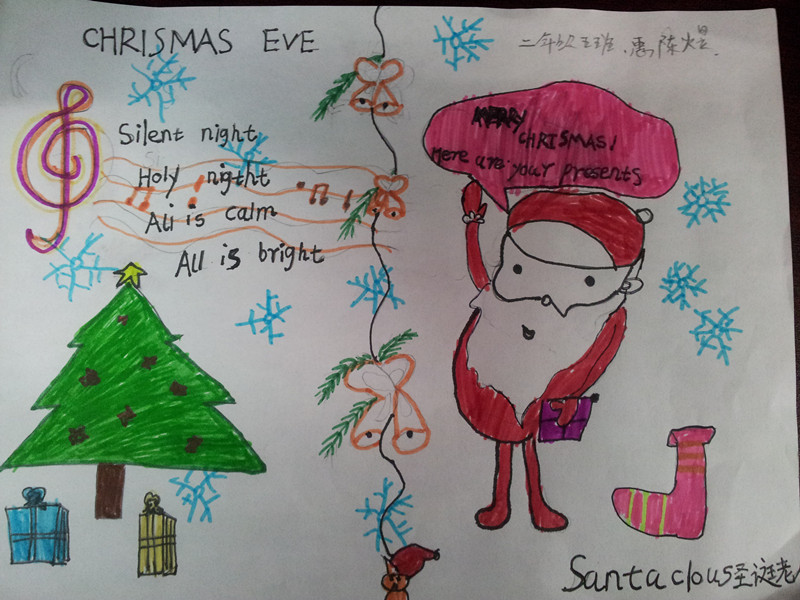 CHRISMAS EVE
二年级五班
Silent night
Holy nigtht
All is calm
All is bright
MERRY
CHRISMAS!
Here are your presents
Santa clous圣诞老人